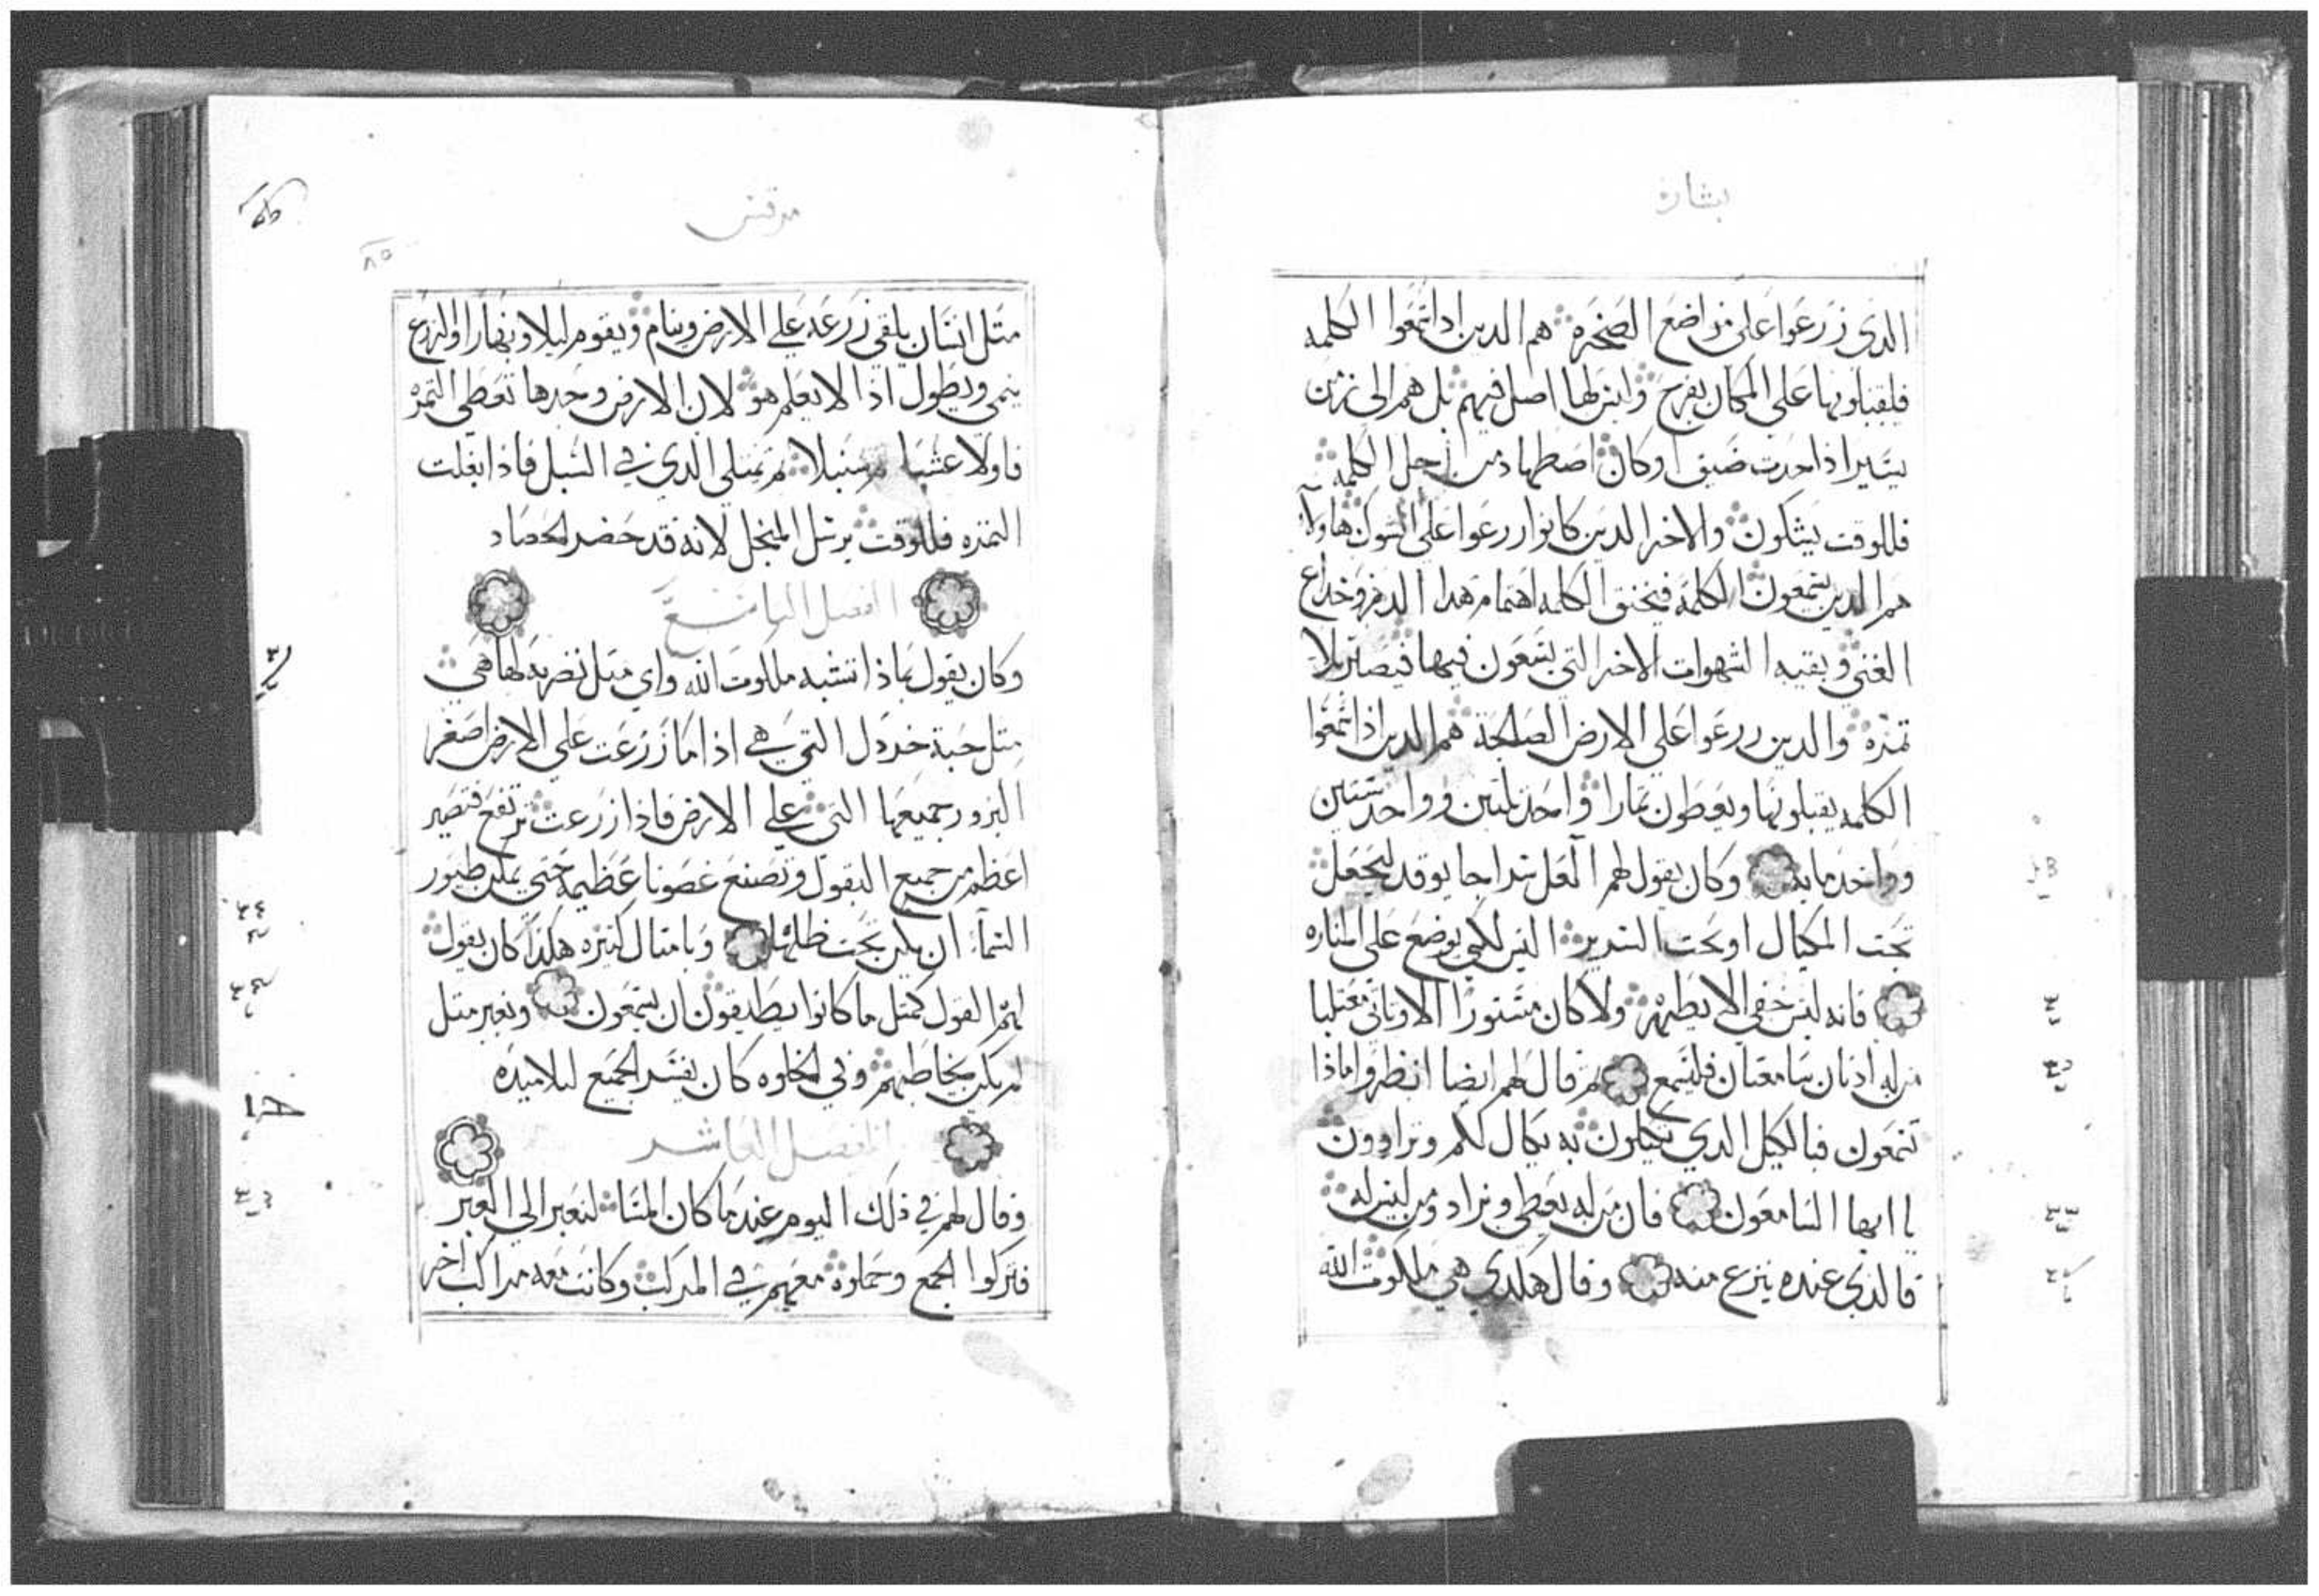 بشارة
الدى زرعوا على مواضع الصخره هم الدين ادا سمعوا الكلمه
فللقبلونها على المكان بفرح وليس لها اصل فيهم بل هم الى زمن
يسير اذا حدت ضيق اوكان اصطهاد من اجل الكلمه
فللوقت يشكون والاخر الدين كانوا زرعوا على الشوك هاولآ
هم الدين يسمعون الكلمه فيخنق الكلمه اهتمام هدا الدهر وخداع
الغنى وبقيه الشهوات الاخر التي يسعون فيها فيصير بلا
تمره والدين زرعوا على الارض الصالحة هم الدين اذا سمعوا
الكلمه يقبلونها ويعطون تمارا واحد تلتين وواحد ستين
وواحد مايه وكان يقول لهم العل سراجا يوقد ليجعل
تحت المكيال او تحت السرير اليس لكي يوضع على المناره
فانه ليس خفي الا يظهر ولا كان مستورا الا وياتي معتلنا
من له اذنان سامعتان فليسمع تم قال لهم ايضا انظروا ماذا
تسمعون فبالكيل الدي تكيلون به يكال لكم وتزادون
يا ايها السامعون فان من له يعطي ويزاد ومن ليس له
فالدي عنده ينزع منه وقال هكدي هي ملكوت الله
مرقس
٨٥
متل انسان يلقي زرعه على الارض وينام ويقوم ليلا ونهارا والزرع
ينمي ويطول اذ لا يعلم هو لان الارض وحدها تعطي التمره
فاولا عشبا تم سنبلا تم يمتلي الدي في السنبل فاذا ابغلت
التمره فللوقت يرسل المنجل لانه قد حضر الحصاد
الفصل التاسع
وكان يقول بماذا نشبه ملكوت الله واي متل نضربه لها هي
متل حبة خردل التي هي اذا ما زرعت على الارض اصغر
البزور جميعها التي على الارض فاذا زرعت ترتفع فتصير
اعظم من جميع البقول وتصنع غصونا عظيمه حتي يمكن طيور
السمآء ان يكن تحت ظلها وبامتال كتيره هكذا كان يقول
لهم القول كمتل ما كانوا يطيقون ان يسمعون وبغير متل
لم يكن يخاطبهم وفي الخلوه كان يفسر الجميع لتلاميده
الفصل العاشر
وقال لهم في ذلك اليوم عندما كان المسا لنعبر الى العبر
فتركوا الجمع وحملوه معهم في المركب وكانت معه مراكب اخر